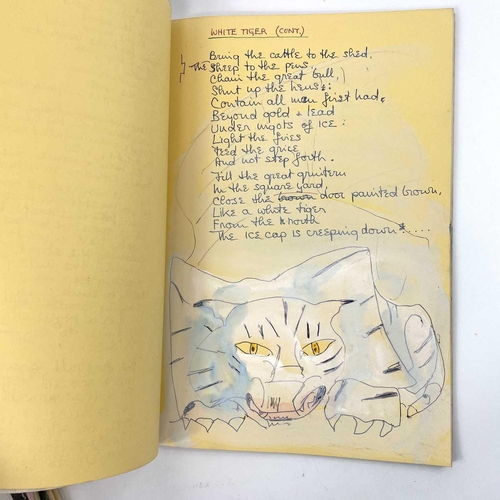 WHITE TIGER (CONT.)
Bring the cattle to the shed,
The sheep to the pens,
Chain the great bull,
Shut up the hens:
Contain all man first had,
Beyond gold + lead
Under ingots of ICE:
Light the fires
Feed the grice
And not step forth.
Fill the great
In the square yard
Close the brown door painted brown,
Like a white tiger
From the north
The ICE cap is creeping down....